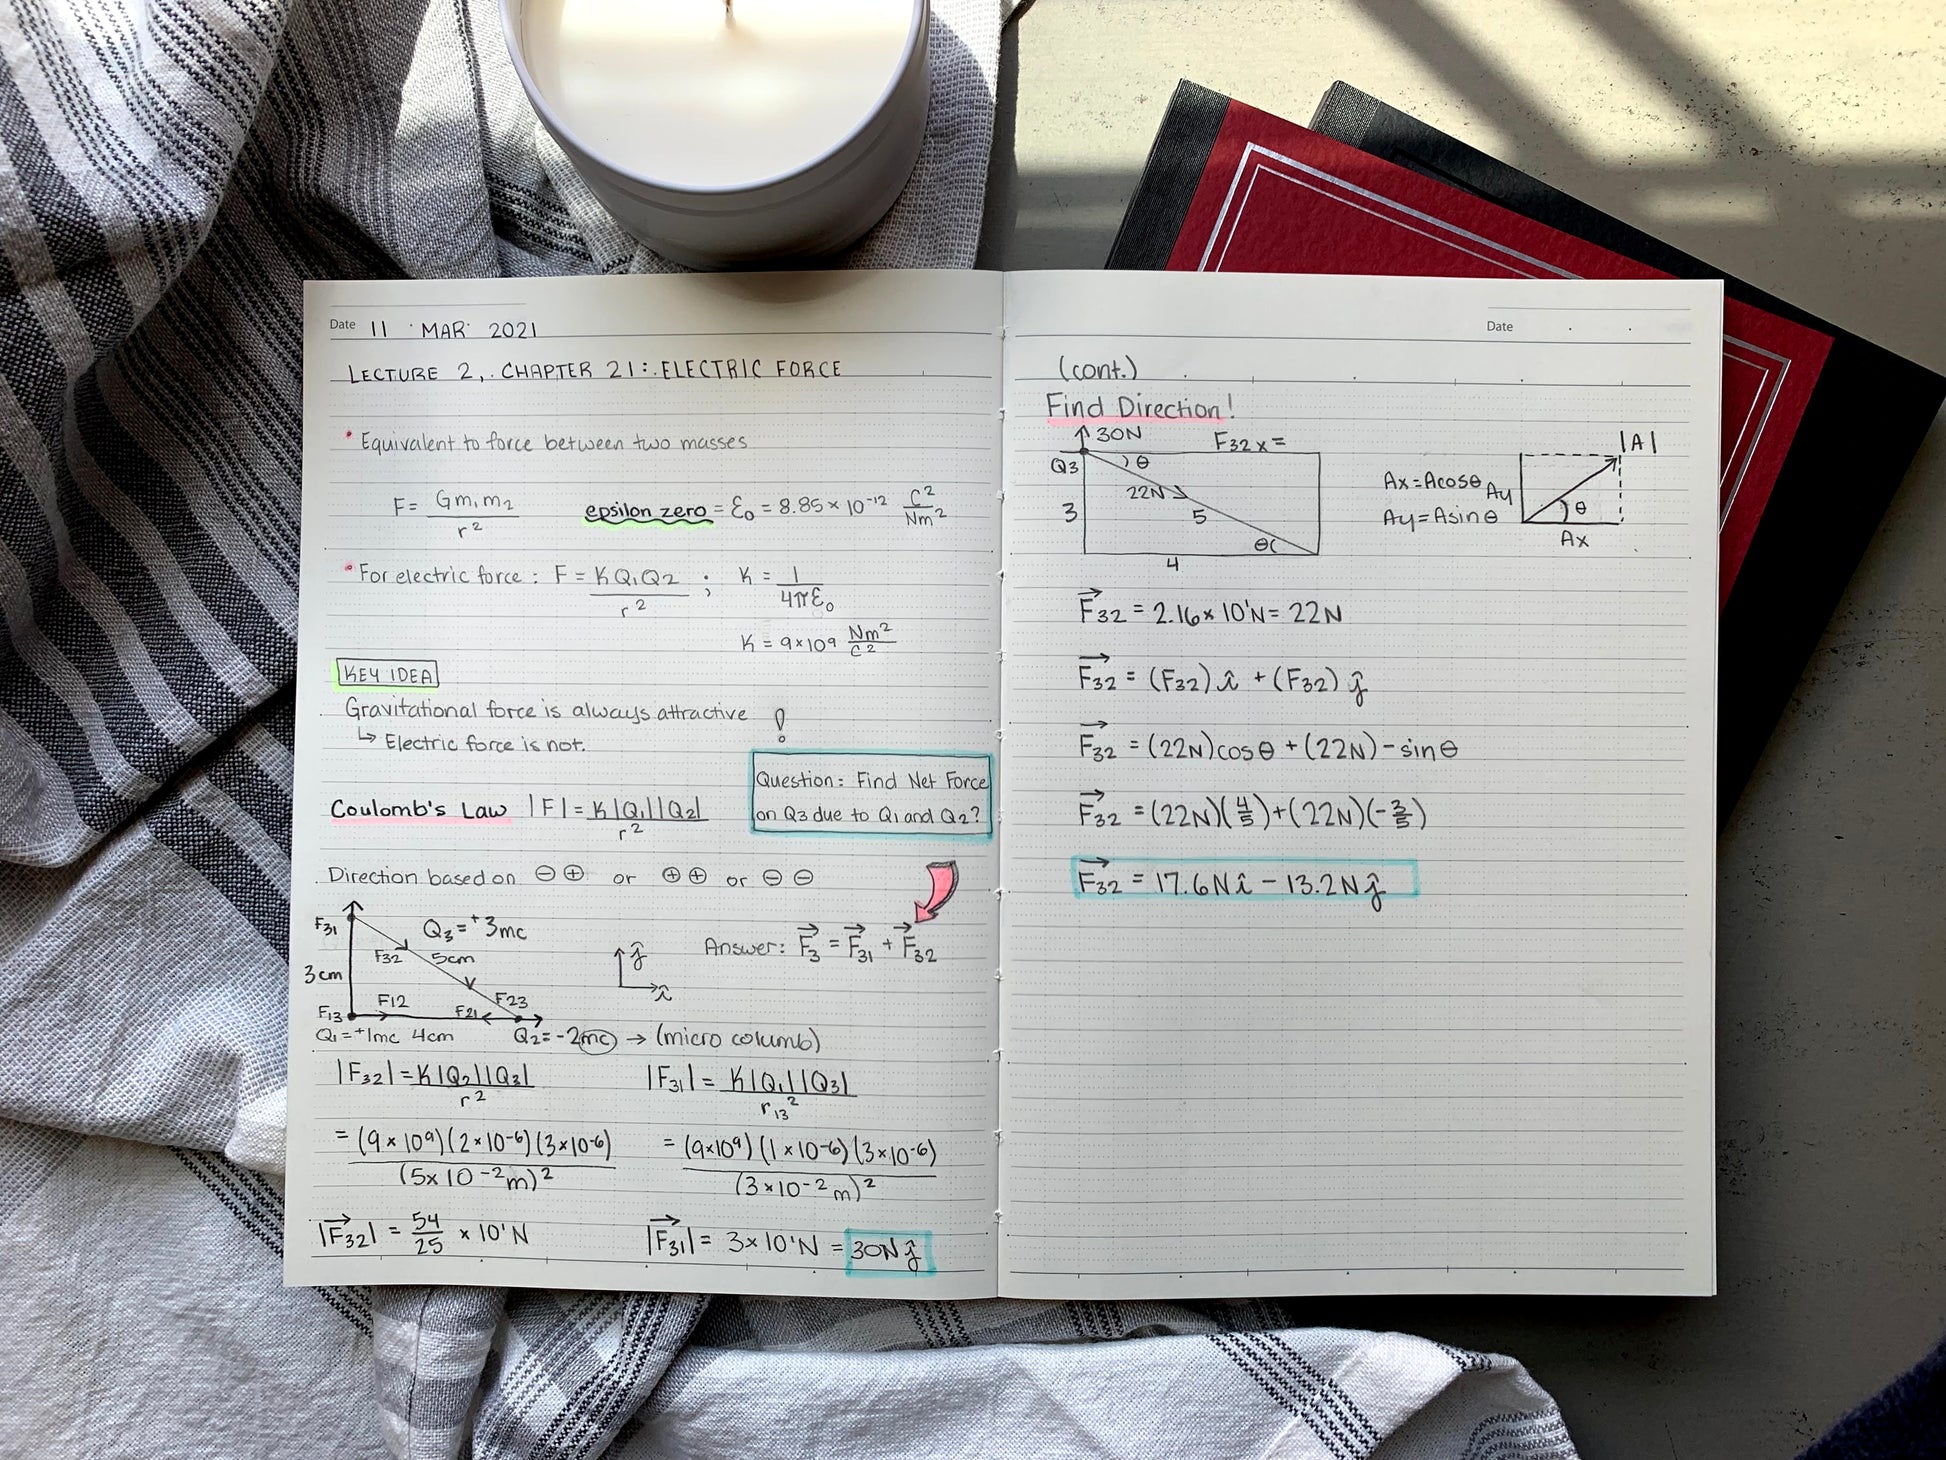 Date 11 · MAR · 2021
LECTURE 2, CHAPTER 21: ELECTRIC FORCE
• Equivalent to force between two masses
F = Gm₁m₂ / r²   epsilon zero = ε₀ = 8.85 × 10⁻¹² C²/Nm²
• For electric force : F = KQ₁Q₂ / r² ; K = 1 / 4πε₀
K = 9×10⁹ Nm²/C²
KEY IDEA
Gravitational force is always attractive
↳ Electric force is not.
!
Question: Find Net Force
on Q3 due to Q1 and Q2?
Coulomb's Law |F| = K|Q₁||Q₂| / r²
Direction based on ⊖⊕ or ⊕⊕ or ⊖⊖
F31
Q₃ = ⁺3mc
F32 5cm
3cm
F12
F23
F13
F21
Q₁ = ⁺1mc 4cm
Q₂ = -2mc → (micro columb)
ĵ
î
Answer: F⃗₃ = F⃗₃₁ + F⃗₃₂
|F₃₂| = K|Q₂||Q₃| / r²
= (9 × 10⁹)(2×10⁻⁶)(3×10⁻⁶) / (5x 10⁻²m)²
|F⃗₃₂| = 54/25 × 10¹N
|F₃₁| = K|Q₁||Q₃| / r₁₃²
= (9×10⁹)(1×10⁻⁶)(3×10⁻⁶) / (3×10⁻²m)²
|F⃗₃₁| = 3×10¹N = 30N ĵ
Date · ·
(cont.)
Find Direction!
30N
F₃₂ₓ =
Q3
θ
22N
3
5
θ
4
Ax = Acosθ
Ay = Asinθ
|A|
Ay
θ
Ax
F⃗₃₂ = 2.16× 10¹N = 22N
F⃗₃₂ = (F₃₂) î + (F₃₂) ĵ
F⃗₃₂ = (22N)cosθ + (22N)-sinθ
F⃗₃₂ = (22N)(4/5)+(22N)(-3/5)
F⃗₃₂ = 17.6N î - 13.2N ĵ